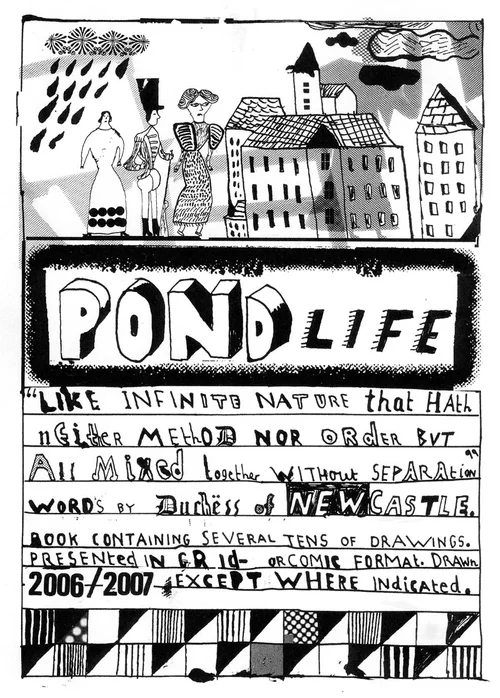 POND LIFE
"LIKE INFINITE NATURE that HAth
nEither MEthOD NOR ORder BUT
All MIXed together WITHout SEPARAtion"
WORD'S BY Duchëss of NEWCASTLE.
BOOK CONTAINING SEVERAL TENS OF DRAWINGS.
PRESENTEd IN GRId- OR COMIC FORMAT. DRAWN
2006/2007 EXCEPT WHERE INdicated.